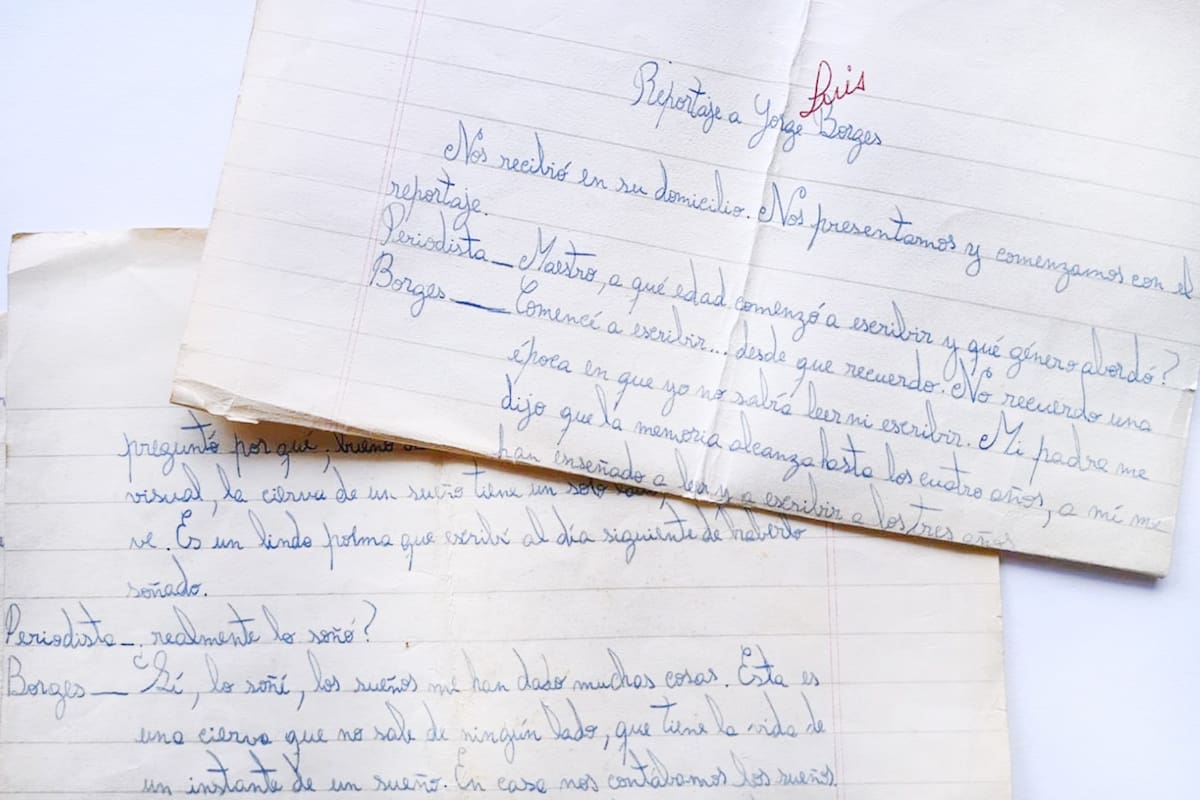 Luis
Reportaje a Jorge Borges
Nos recibió en su domicilio. Nos presentamos y comenzamos con el
reportaje.
Periodista — Maestro, a qué edad comenzó a escribir y qué género abordó?
Borges — Comencí a escribir... desde que recuerdo. No recuerdo una
época en que yo no sabía leer ni escribir. Mi padre me
dijo que la memoria alcanza hasta los cuatro años, a mí me
han enseñado a leer y a escribir a los tres años
preguntó por qué; bueno
visual, la cierva de un sueño tiene un solo
ve. Es un lindo poema que escribí al día siguiente de haberlo
soñado.
Periodista — realmente lo soñó?
Borges — Sí, lo soñé, los sueños me han dado muchas cosas. Esta es
una cierva que no sale de ningún lado, que tiene la vida de
un instante de un sueño. En casa nos contábamos los sueños